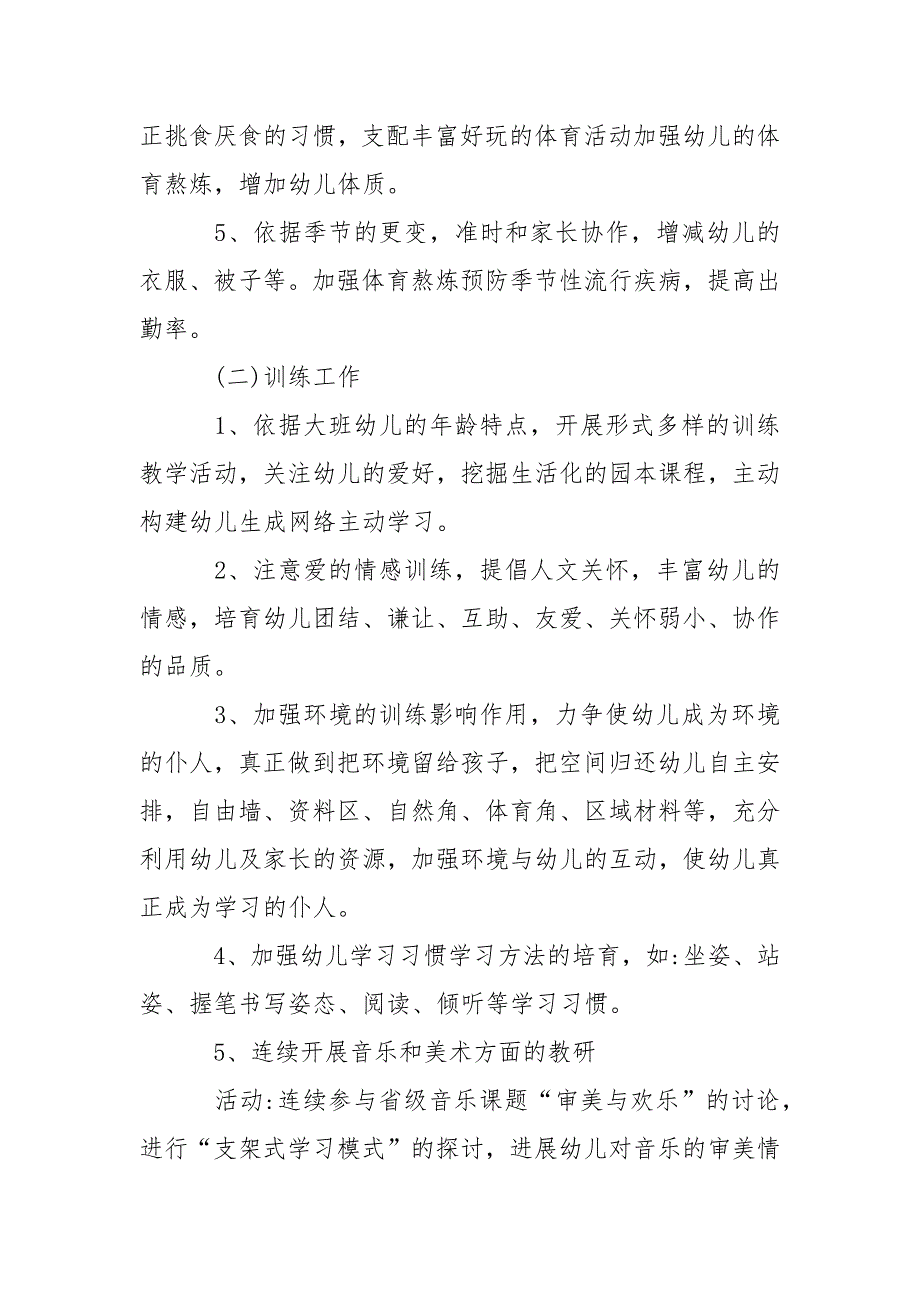 正挑食厌食的习惯，支配丰富好玩的体育活动加强幼儿的体
育熬炼，增加幼儿体质。
5、依据季节的更变，准时和家长协作，增减幼儿的
衣服、被子等。加强体育熬炼预防季节性流行疾病，提高出
勤率。
(二)训练工作
1、依据大班幼儿的年龄特点，开展形式多样的训练
教学活动，关注幼儿的爱好，挖掘生活化的园本课程，主动
构建幼儿生成网络主动学习。
2、注意爱的情感训练，提倡人文关怀，丰富幼儿的
情感，培育幼儿团结、谦让、互助、友爱、关怀弱小、协作
的品质。
3、加强环境的训练影响作用，力争使幼儿成为环境
的仆人，真正做到把环境留给孩子，把空间归还幼儿自主安
排，自由墙、资料区、自然角、体育角、区域材料等，充分
利用幼儿及家长的资源，加强环境与幼儿的互动，使幼儿真
正成为学习的仆人。
4、加强幼儿学习习惯学习方法的培育，如:坐姿、站
姿、握笔书写姿态、阅读、倾听等学习习惯。
5、连续开展音乐和美术方面的教研
活动:连续参与省级音乐课题“审美与欢乐”的讨论，
进行“支架式学习模式”的探讨，进展幼儿对音乐的审美情